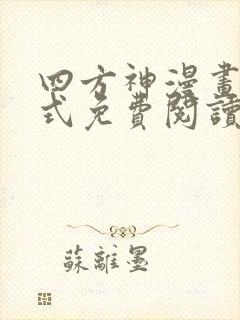 四方神漫畫
式免費閱讀
蘇離墨